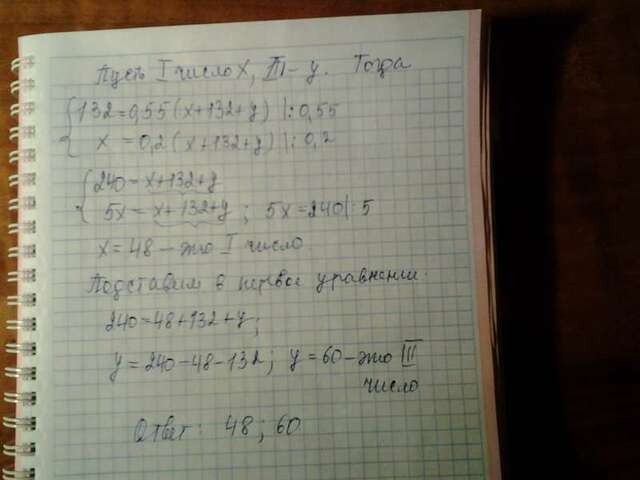 Пусть I число X, III – y. Тогда
{132=0,55(x+132+y) |:0,55
x = 0,2(x+132+y) |:0,2
{240=x+132+y
5x=x+132+y; 5x=240|:5
x=48 – это I число
Подставим в первое уравнении.
240=48+132+y;
y=240-48-132; y=60-это III
число
Ответ: 48; 60